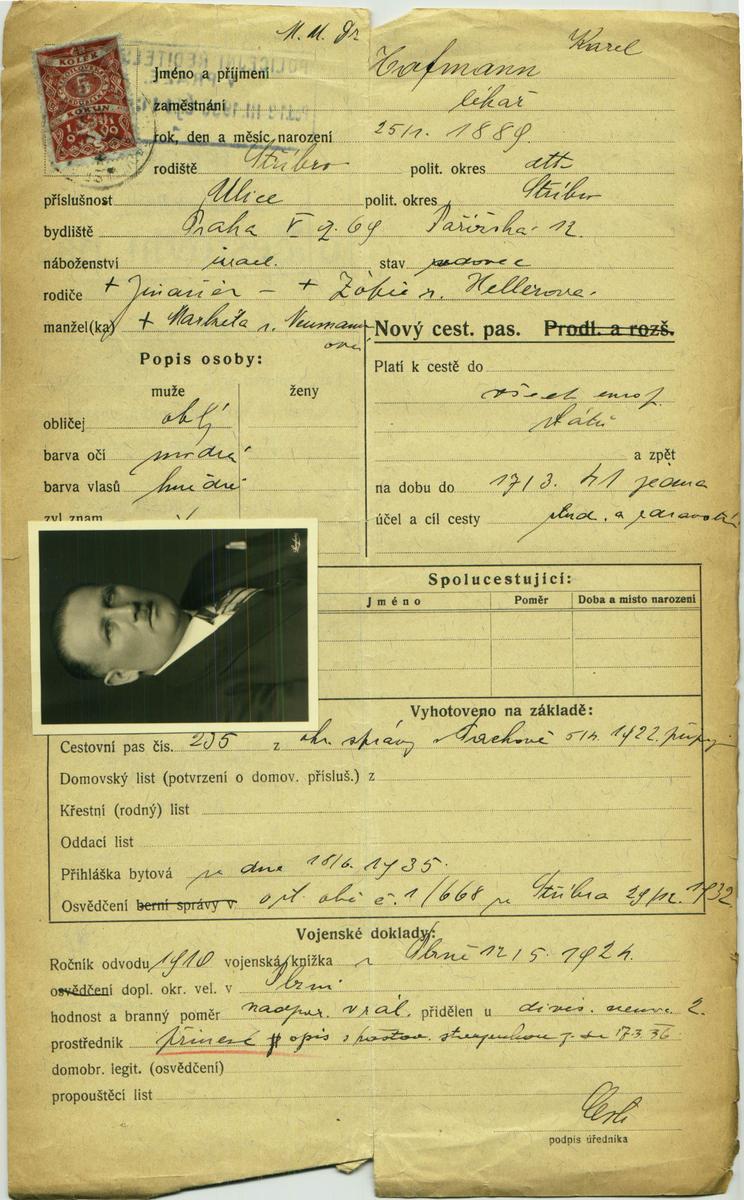 M. U. Dr
Karel
Jméno a příjmení Hofmann
zaměstnání lékař
rok, den a měsíc narození 25/1. 1889.
rodiště Stříbro polit. okres dtto
příslušnost Ulice polit. okres Stříbro
bydliště Praha V č. 69 Pařížská 12.
náboženství israel. stav vdovec
rodiče + - + Žofie r. Hellerova.
manžel(ka) + Markéta r. Neumann
ova
Nový cest. pas. Prodl. a rozš.
Popis osoby:
Platí k cestě do
muže ženy
všech evrop.
obličej obl.
států
barva očí modrá
a zpět
barva vlasů hnědé
na dobu do 17/3. 41 jedna
zvl znam
účel a cíl cesty stud. a zdravotní
Spolucestující:
Jméno Poměr Doba a místo narození
Vyhotoveno na základě:
Cestovní pas čis. 235 z okr. správy Tachově 5/4. 1922.
Domovský list (potvrzení o domov. přísluš.) z
Křestní (rodný) list
Oddací list
Přihláška bytová ze dne 18/6. 1935.
Osvědčení berní správy v. č. 1/668 ze Stříbra 29/12. 1932
Vojenské doklady:
Ročník odvodu 1910 vojenská knížka z Plzně 12/5. 1924.
osvědčení dopl. okr. vel. v Plzni
hodnost a branný poměr nadpor. v zál. přidělen u divis. nemoc. 2.
prostředník přinese opis s 17.3.36.
domobr. legit. (osvědčení)
propouštěcí list
podpis úředníka
KOLEK
5
KORUN